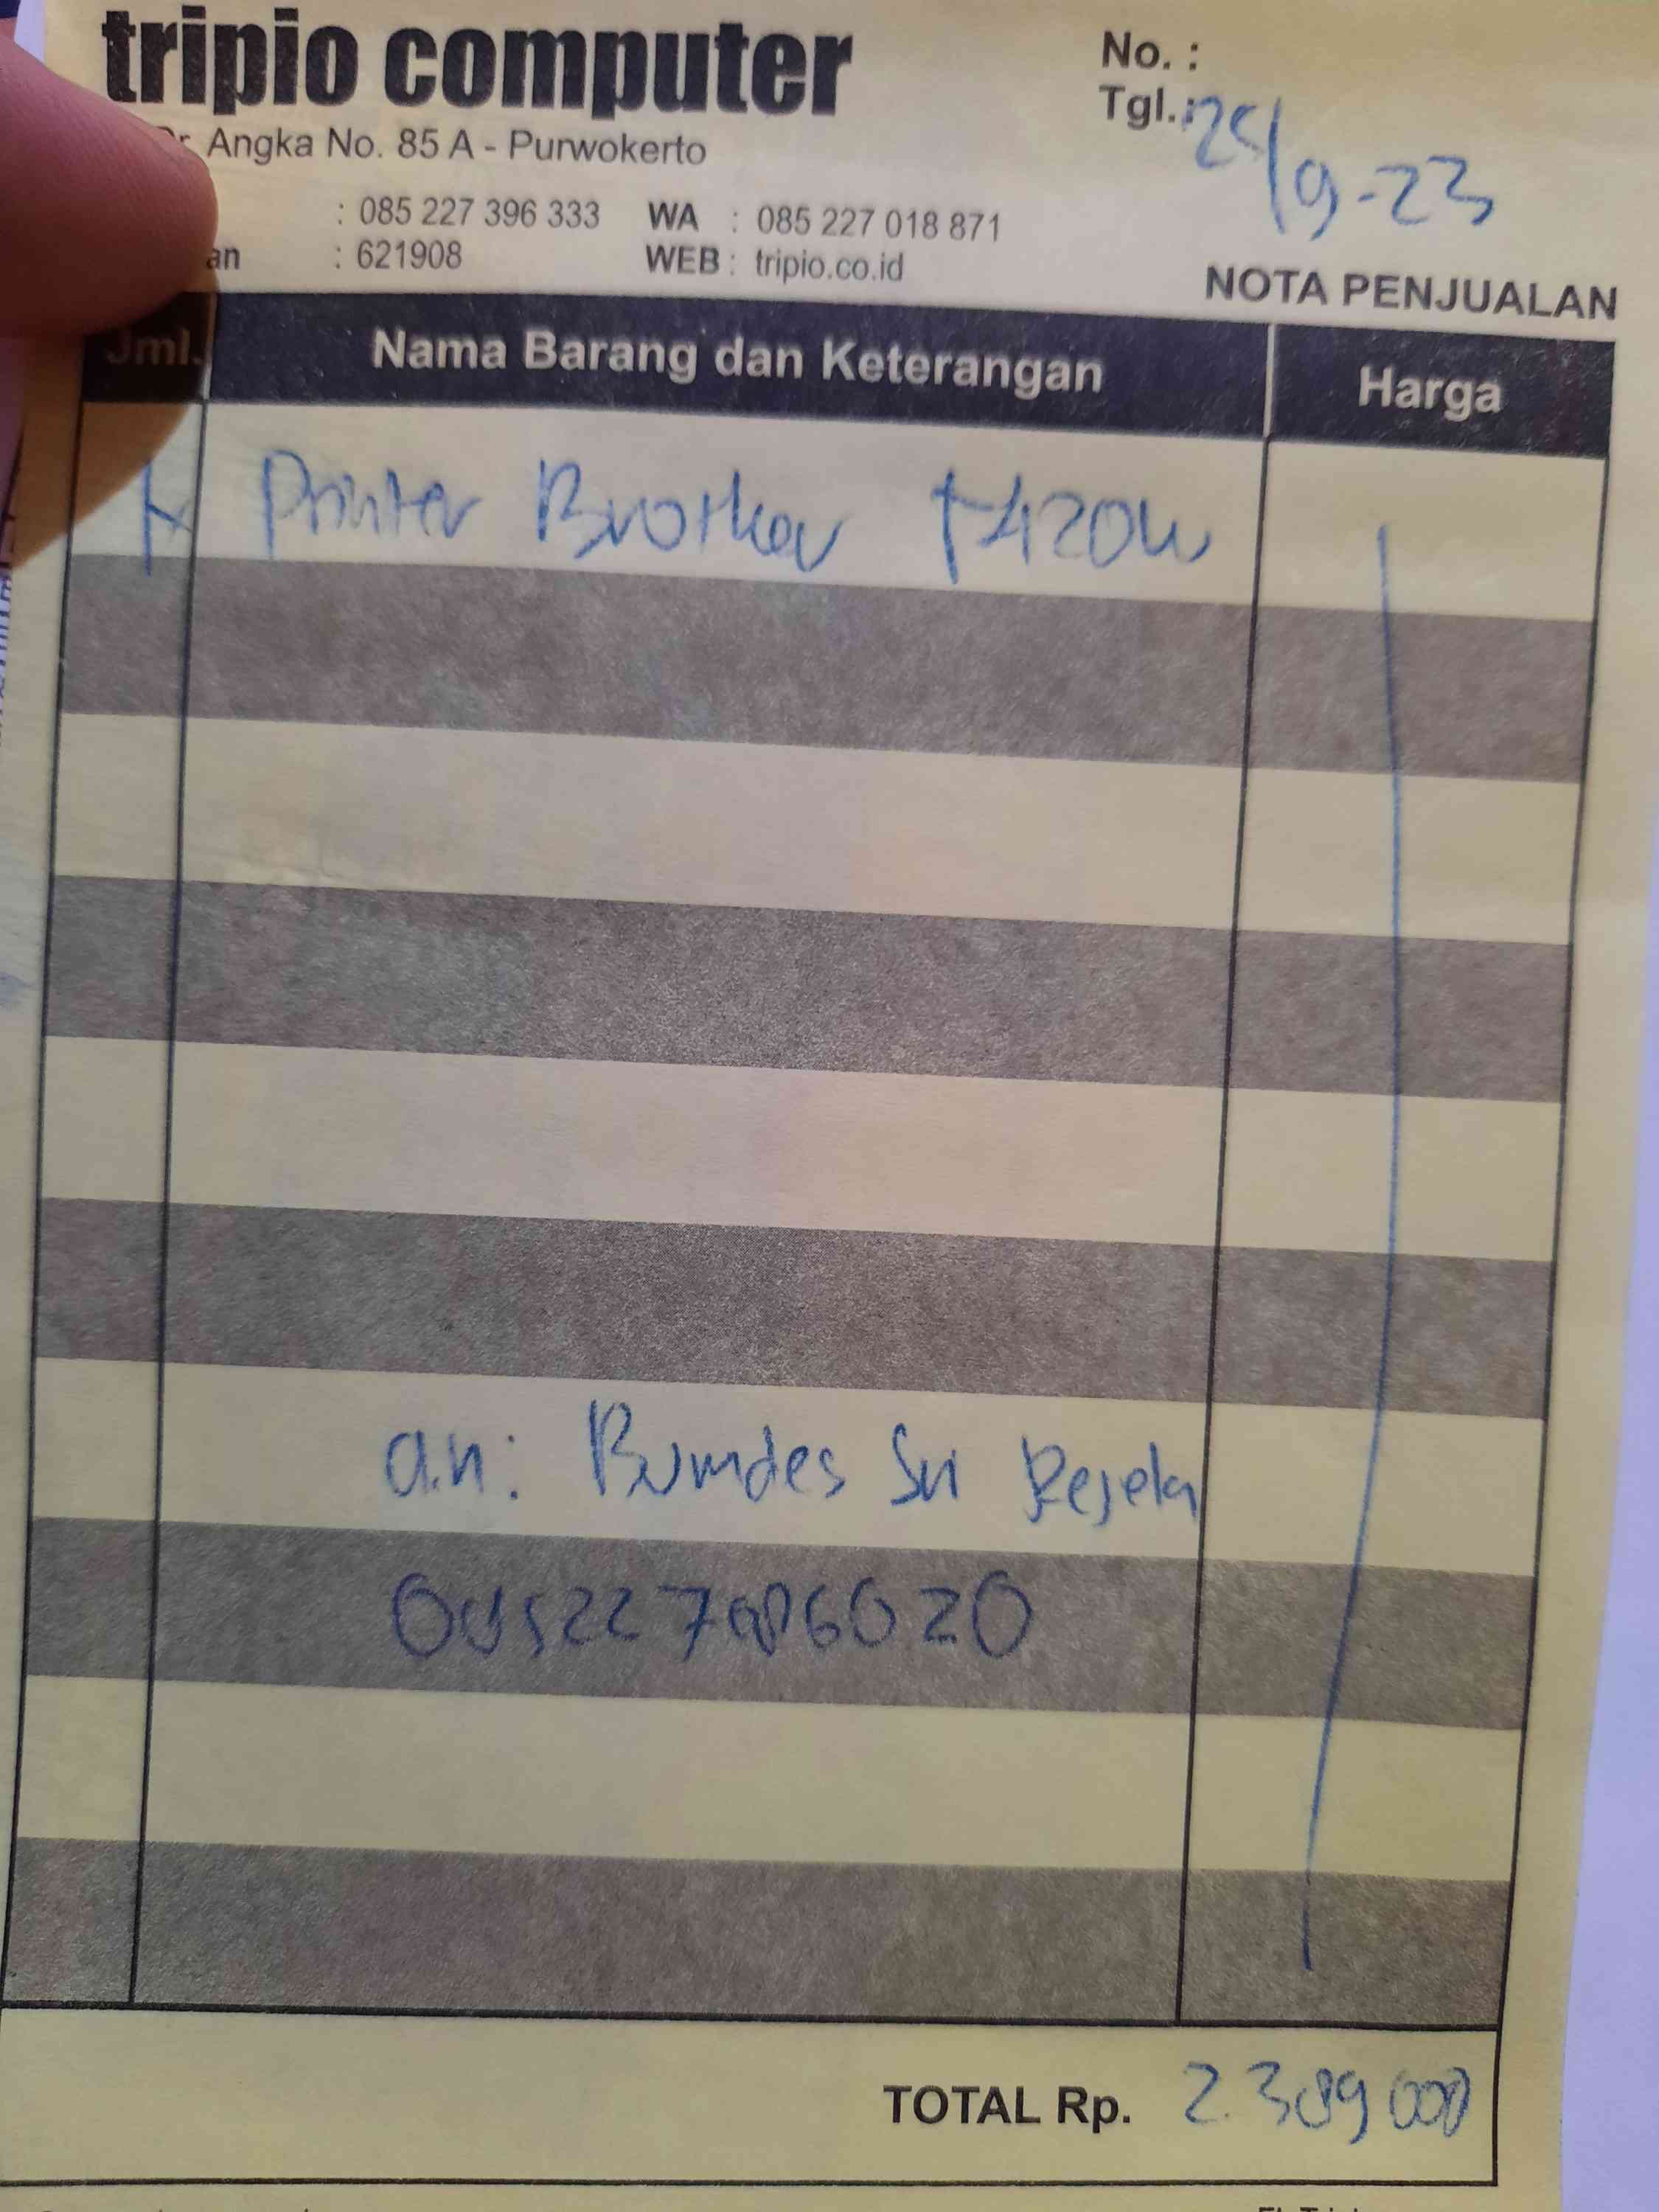 tripio computer
Angka No. 85 A - Purwokerto
: 085 227 396 333 WA : 085 227 018 871
: 621908 WEB : tripio.co.id
No. :
Tgl. : 25/9-23
NOTA PENJUALAN
Jml. Nama Barang dan Keterangan Harga
1 Printer Brother T420W
a.n: Bumdes Sri Rejeki
085227086020
TOTAL Rp. 2.389 000